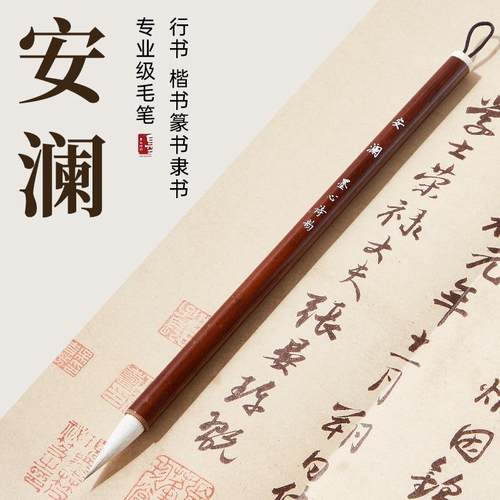 安澜
行书 楷书篆书隶书
专业级毛笔
安澜 墨心诗韵
元年十一月朔日
學士荣禄大夫張晏